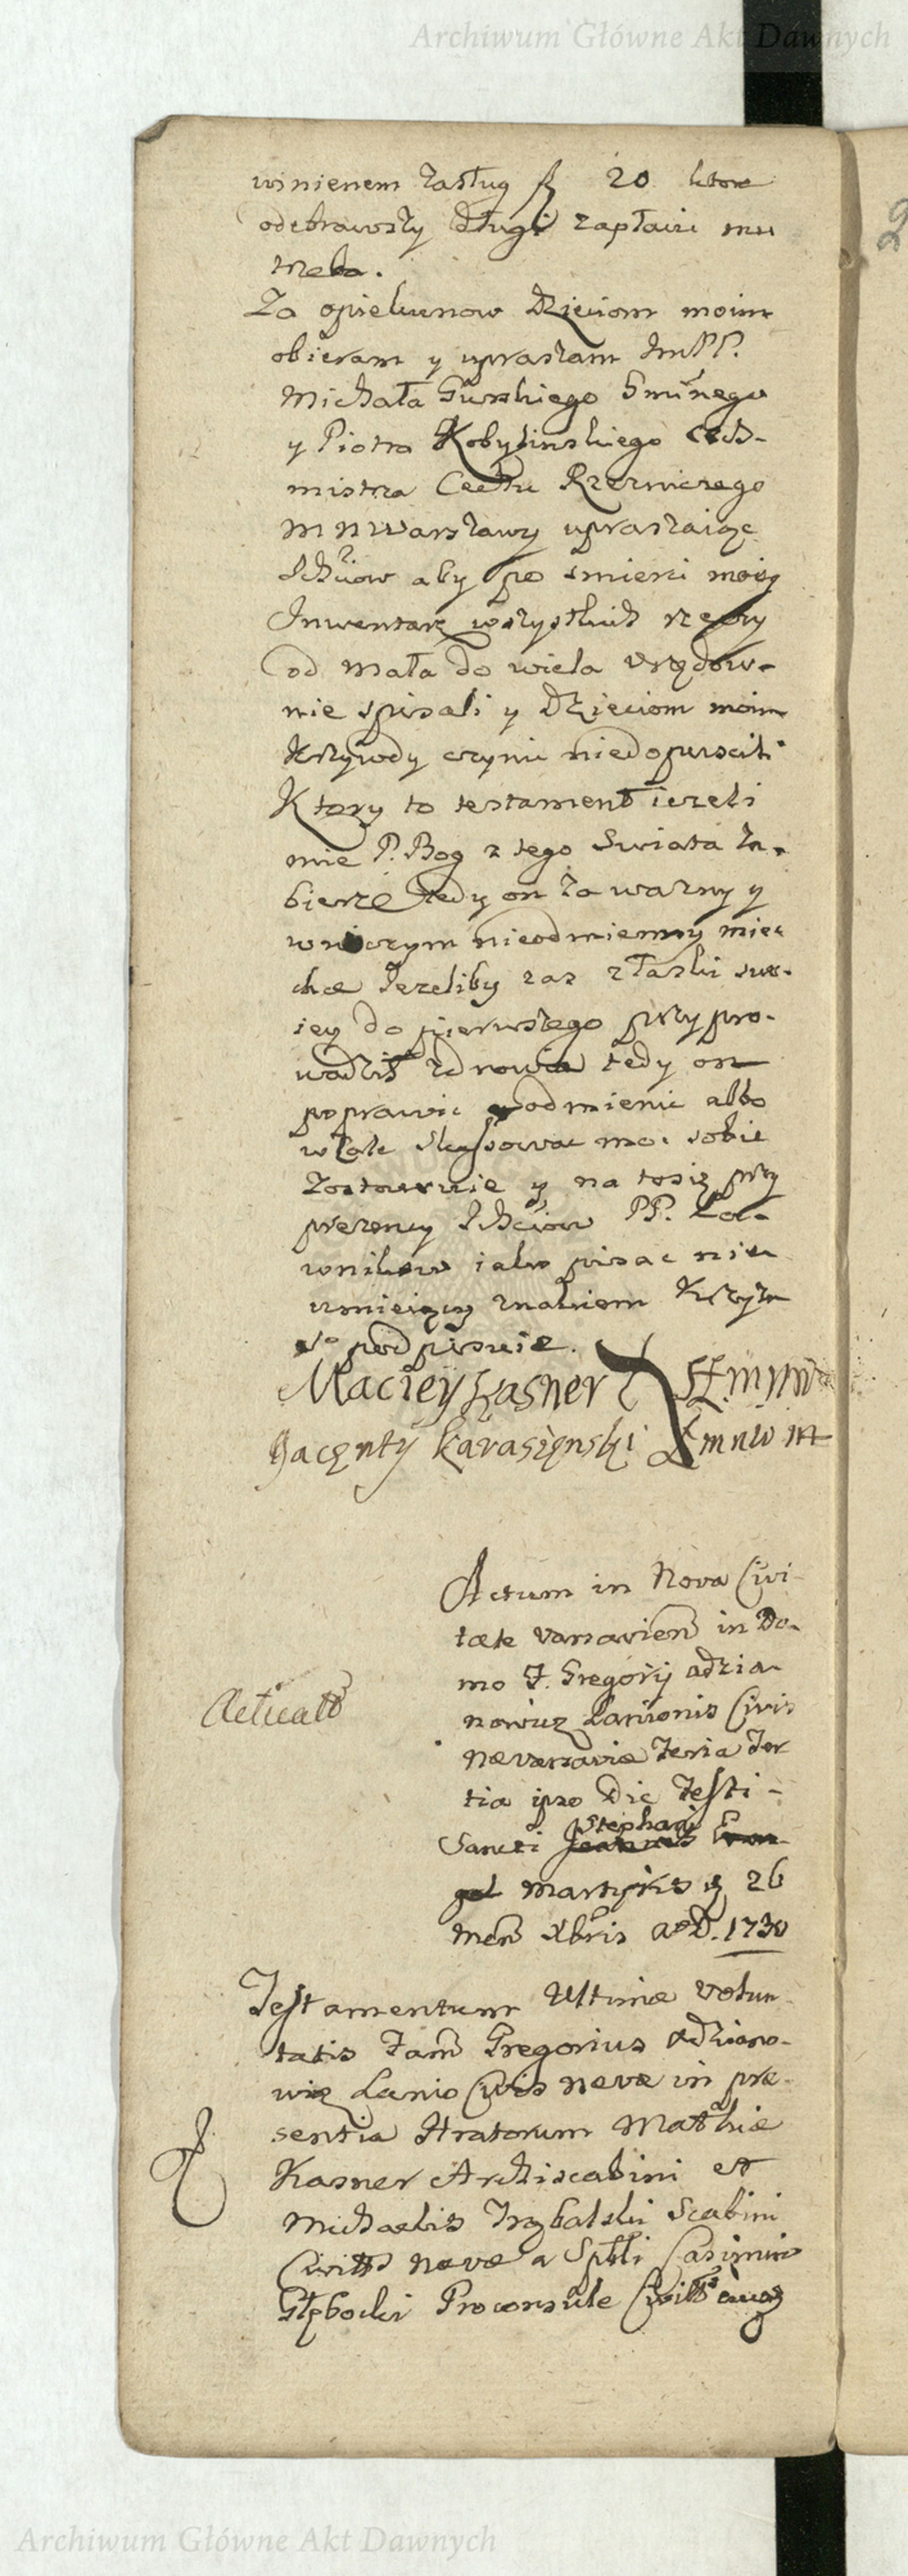 Archiwum Główne Akt Dawnych
winienem zasług fl 20 ktore
odebrawszy długi zapłacic mu
trzeba.
Za opiekunow Dzieciom moim
obieram y upraszam ImPP.
Michała Gurskiego Gminnego
y Piotra Kobylinskiego Cech-
mistrza Cechu Rzeźniczego
M N Warszawy upraszaiąc
Ichmciow aby po smierci moiey
Inwentarz wszystkich rzeczy
od mała do wiela Urzędow-
nie spisali y Dzieciom moim
Krzywdy czynic niedopuscili
Ktory to testament iezeli
mie P. Bog z tego Swiata za-
bierze tedy on za wazny y
wniczym nieodmienny miec
chce Iezeliby zas z łaski swo-
iey do pierwszego przypro-
wadził zdrowia tedy on
poprawic y odmienic albo
w Cale skassowac moc sobie
zostawuie y na tosię przy
prezency Ichmciow PP. Ław-
wnikow iako pisac nie
umieiący znakiem Krzyza
S° podpisuie.
Maciey Kasner
Jacęnty Karasięnski
Actum in Nova Civi-
tate Varsavien in Do-
mo F. Gregorij Adzia-
nowicz Lanionis Civis
Novae Varsaviae Feria Ter
tia ipso Die Festi
Stephani
Sancti
Martyris 26
Men Xbris A°D. 1730
Acticat
Testamentum Ultimae Volun
tatis Fam Gregorius Adziano-
wicz Lanio Civis Novae in prae-
sentia Hratorum Mathiae
Kasner Archiscabini et
Michaelis Trzbalski Scabini
Civitt Novae a Sptli Casimiro
Głębocki Proconsule Civitt
2
Archiwum Główne Akt Dawnych